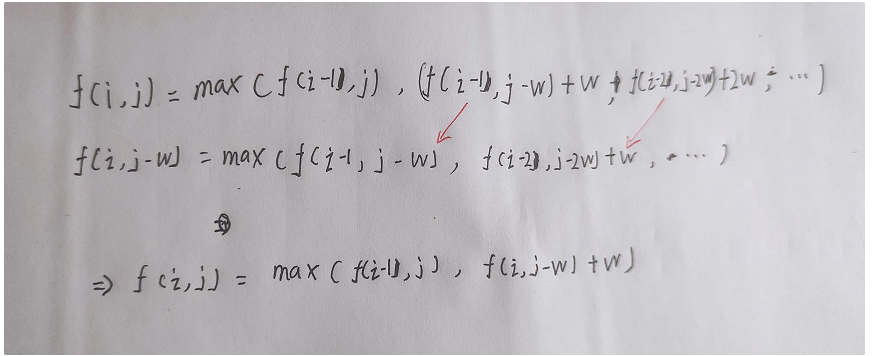 f(i,j) = max ( f(i-1),j) , (f(i-1), j-w)+w , f(i-2), j-2w)+2w , ···)
f(i,j-w) = max ( f(i-1, j-w) , f(i-2), j-2w)+w , ····)
=> f(i,j) = max ( f(i-1),j) , f(i,j-w)+w)